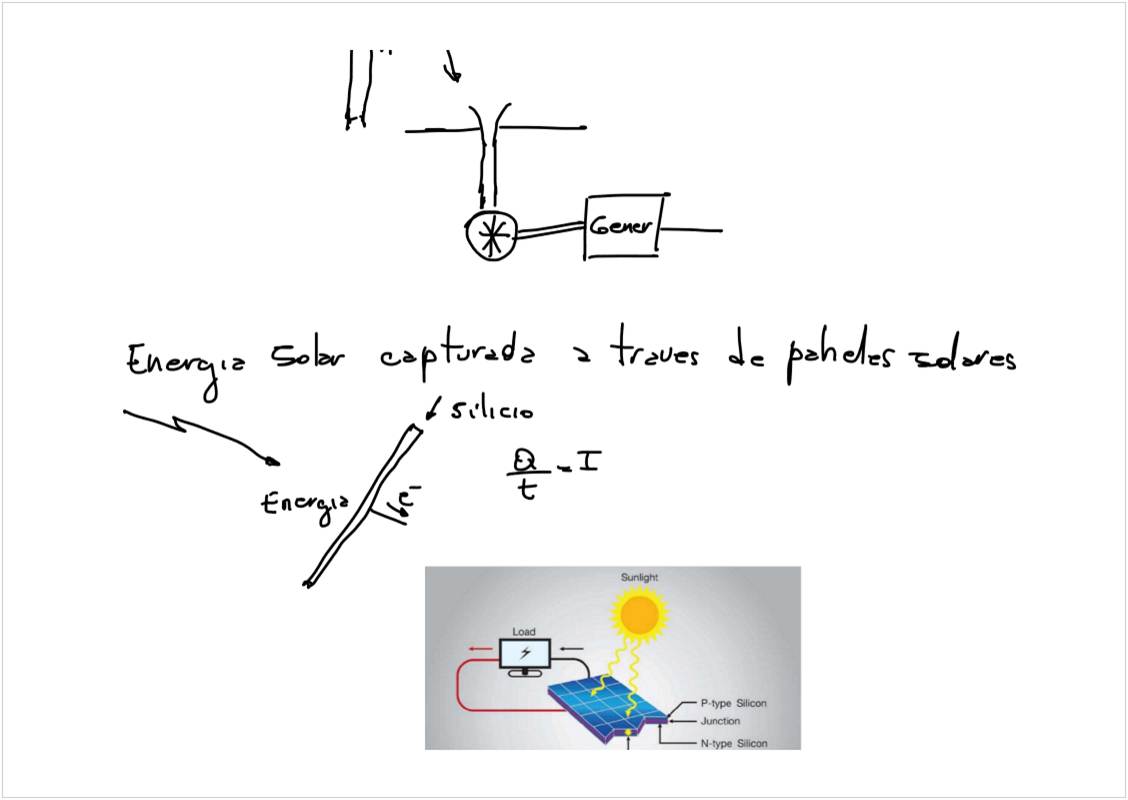 Gener
Energia solar capturada a traves de paneles solares
silicio
Q/t = I
Energia
e⁻
Sunlight
Load
P-type Silicon
Junction
N-type Silicon